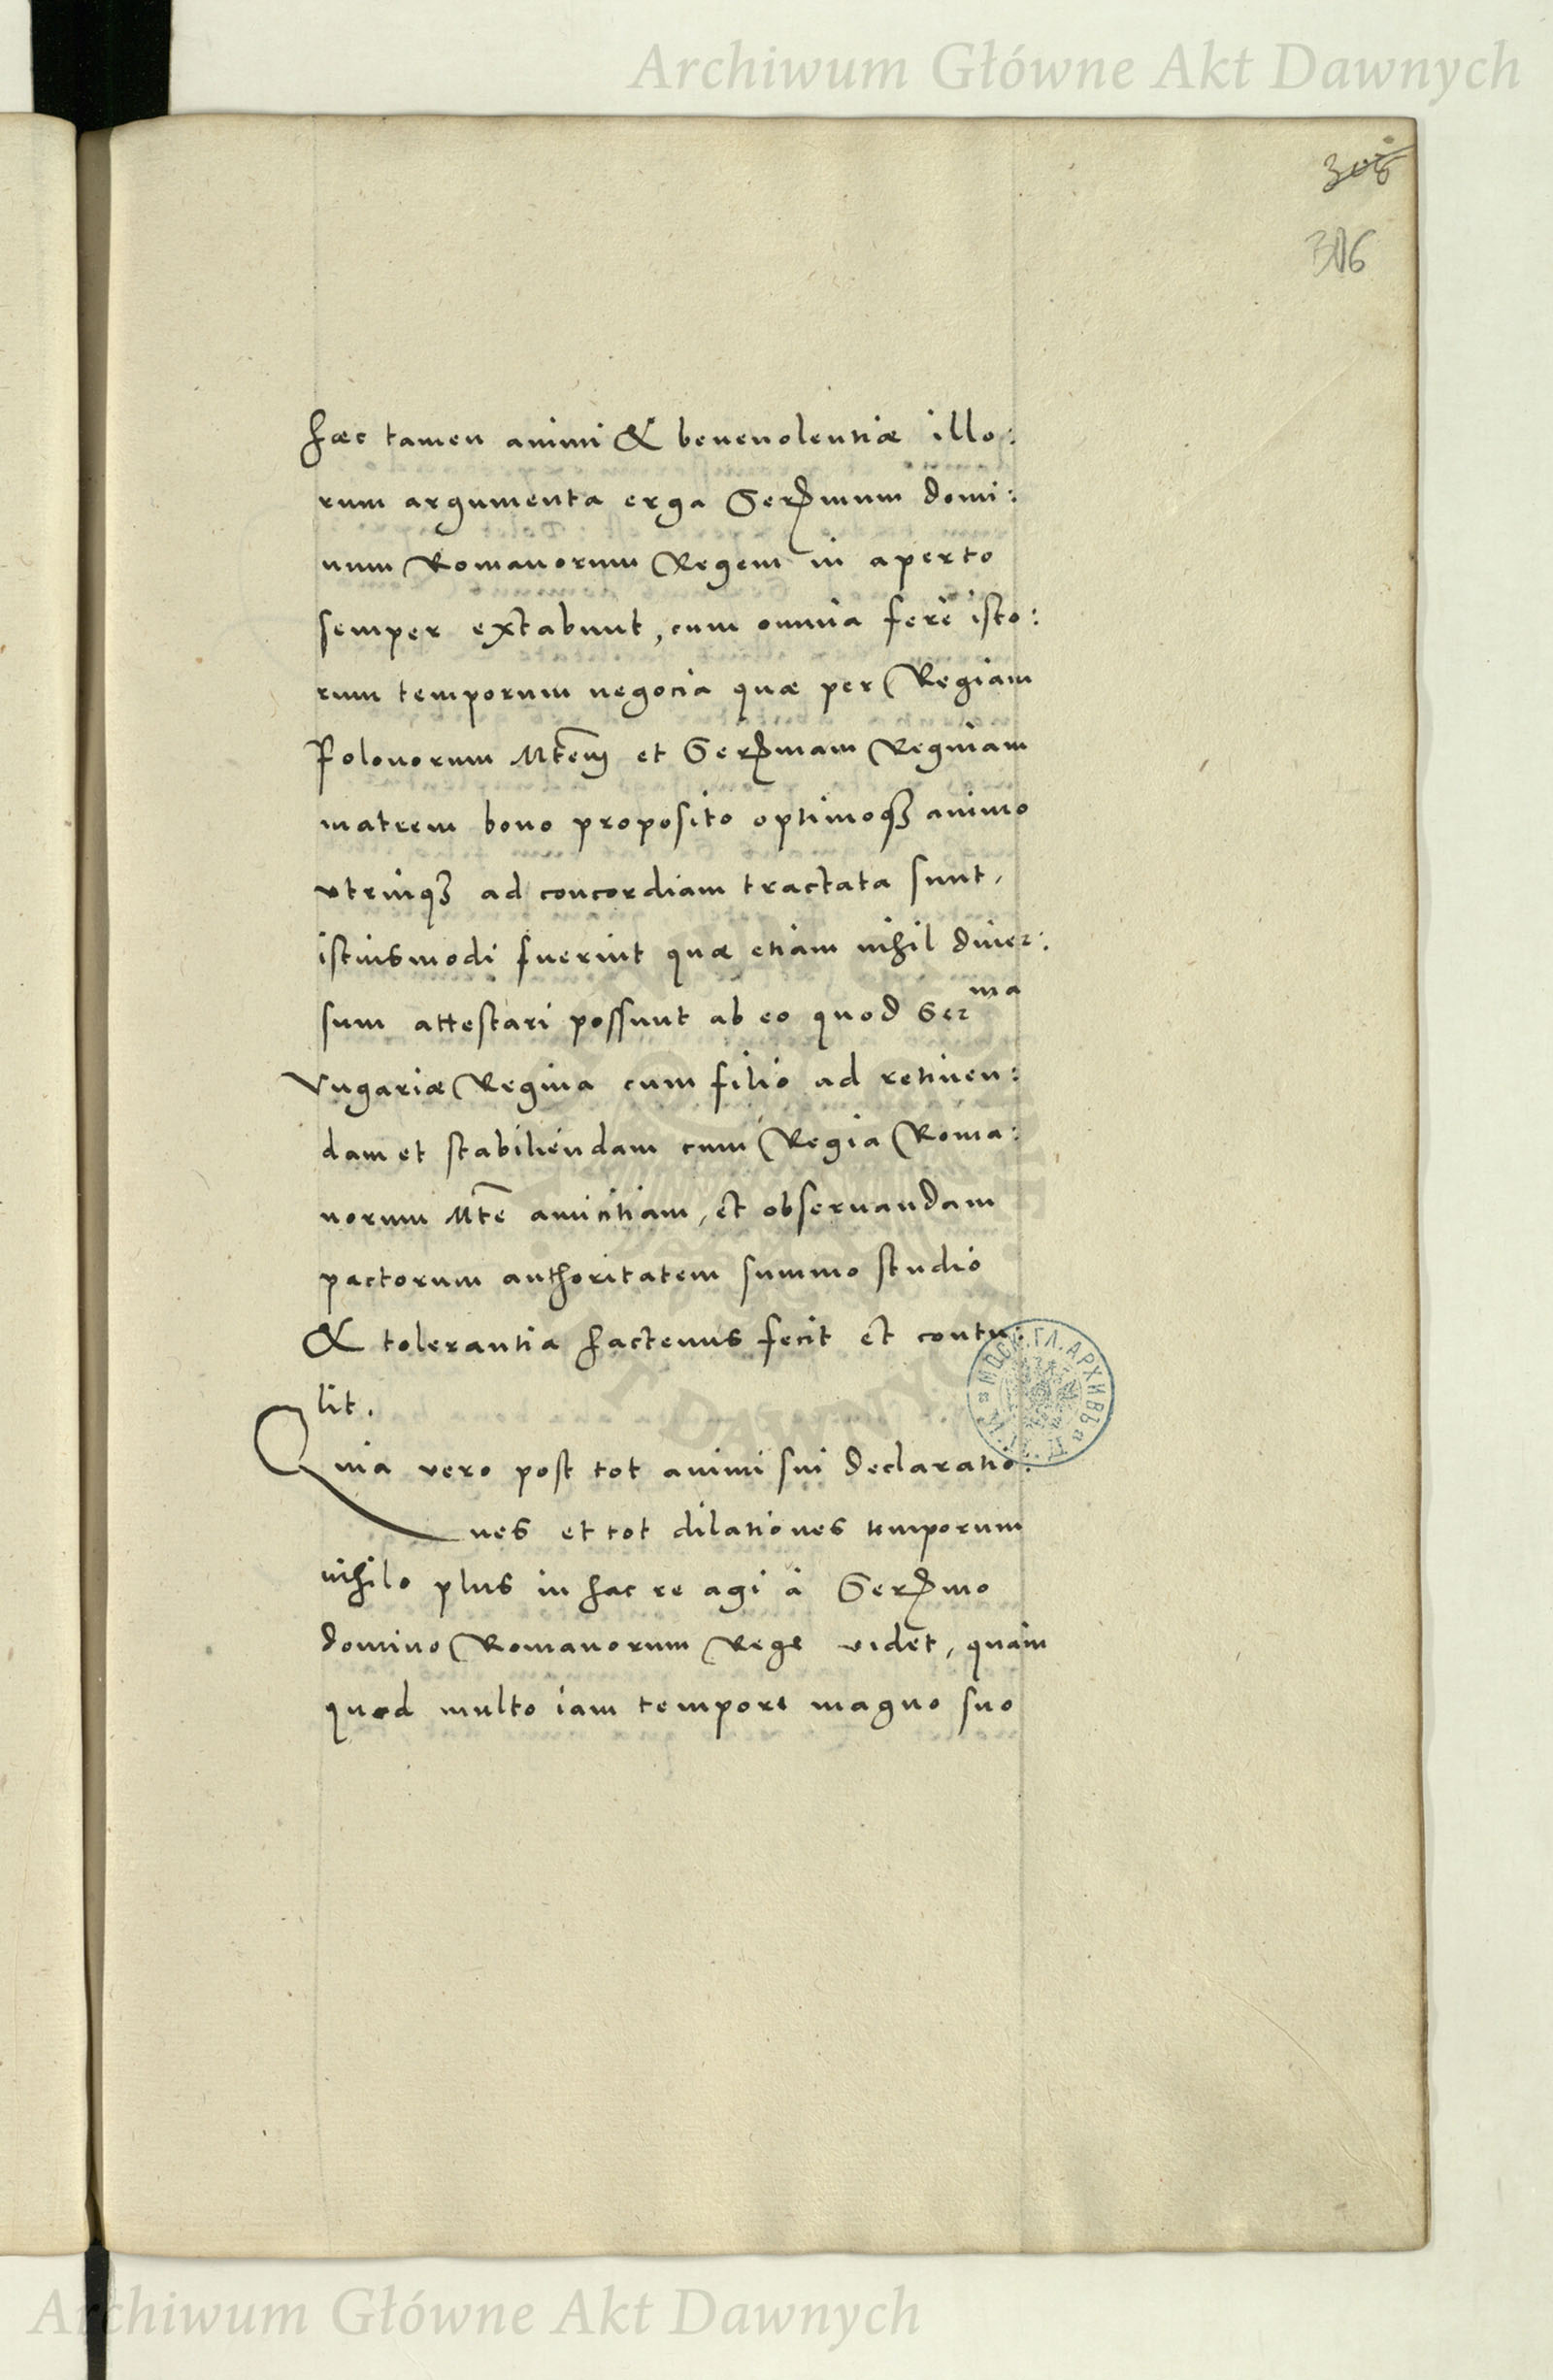 Archiwum Główne Akt Dawnych
306
316
hæc tamen animi & beneuolentiæ illo:
rum argumenta erga Serꝑmum domi:
num Romanorum Regem in aperto
semper extabunt, cum omnia ferè isto:
rum temporum negocia quæ per Regiam
Polonorum Mtem et Serꝑmam Reginam
matrem bono proposito optimoqꝫ animo
vtrinqꝫ ad concordiam tractata sunt,
istiusmodi fuerint quæ etiam nihil diuer:
sum attestari possunt ab eo quod Serma
Vngariæ Regina cum filio ad retinen:
dam et stabiliendam cum Regia Roma:
norum Mte amicitiam, et obseruandam
pactorum authoritatem summo studio
& tolerantia hactenus fecit et contu:
lit.
Quia vero post tot animi sui declaratio:
nes et tot dilationes temporum
nihilo plus in hac re agi à Serꝑmo
domino Romanorum Rege videt, quàm
quod multo iam tempore magno suo
Archiwum Główne Akt Dawnych